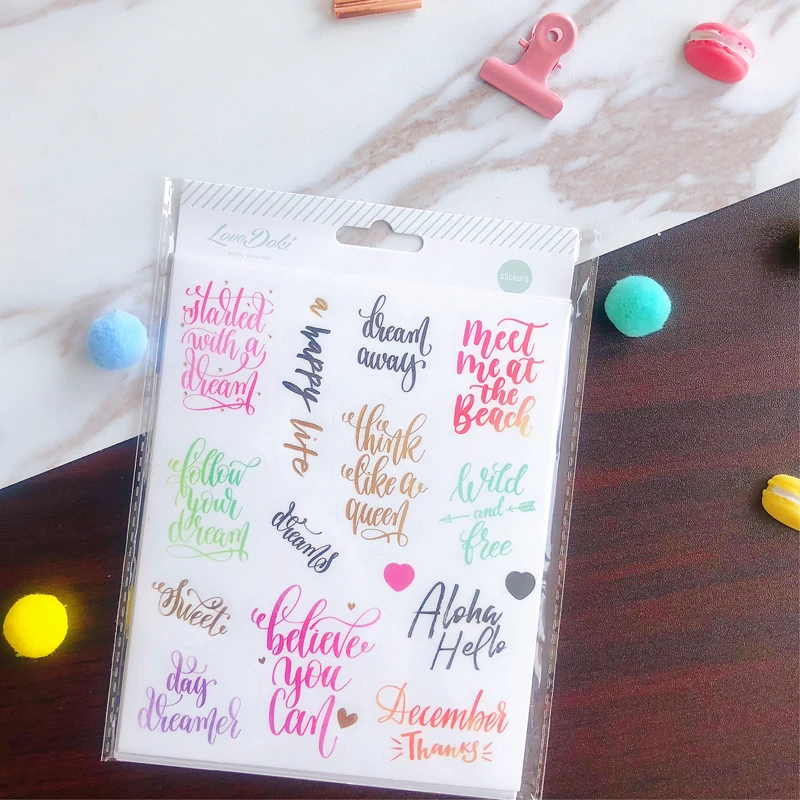 LovaDoki
enjoy your life
stickers
started
with a
dream
a happy life
dream
away
Meet
me at
the
Beach
follow
your
dream
think
like a
queen
Wild
and
free
dreams
Sweet
believe
you
Can
Aloha
Hello
day
dreamer
December
Thanks